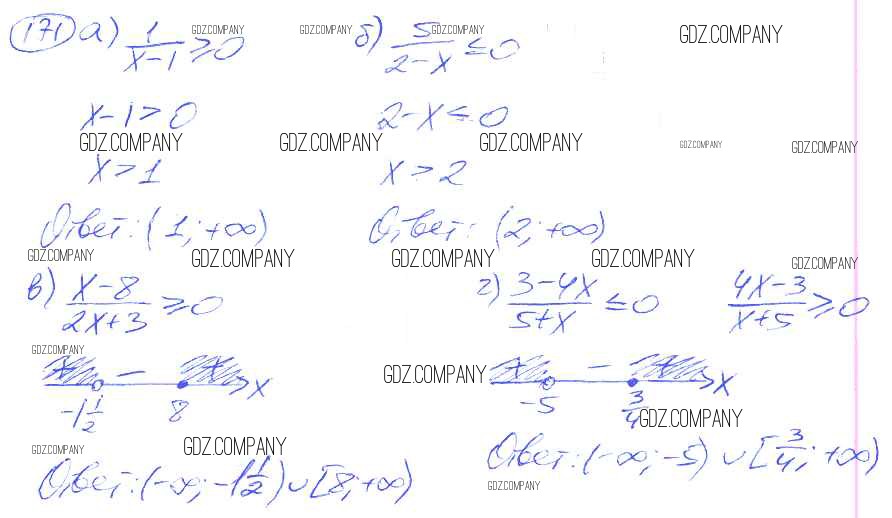 171 а) 1/(x-1) ≥ 0 GDZ.COMPANY GDZ.COMPANY б) 5/(2-x) ≤ 0 GDZ.COMPANY GDZ.COMPANY
x-1 > 0 2-x ≤ 0
GDZ.COMPANY GDZ.COMPANY GDZ.COMPANY GDZ.COMPANY GDZ.COMPANY
x > 1 x > 2
Ответ: (1; +∞) Ответ: (2; +∞)
GDZ.COMPANY GDZ.COMPANY GDZ.COMPANY GDZ.COMPANY GDZ.COMPANY
в) (x-8)/(2x+3) ≥ 0 г) (3-4x)/(5+x) ≤ 0 (4x-3)/(x+5) ≥ 0
GDZ.COMPANY
+ - + x GDZ.COMPANY + - + x
-1 1/2 8 -5 3/4 GDZ.COMPANY
GDZ.COMPANY GDZ.COMPANY
Ответ: (-∞; -1 1/2) ∪ [8; +∞) Ответ: (-∞; -5) ∪ [3/4; +∞)
GDZ.COMPANY